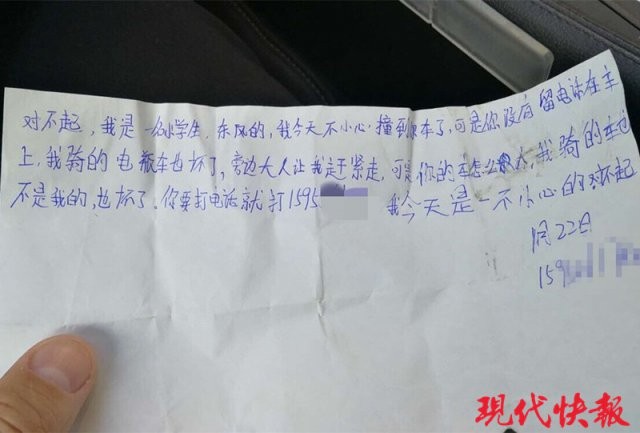 对不起，我是一名小学生，东风的，我今天不小心撞到车了，可是你没有留电话在车
上，我骑的电瓶车也坏了，旁边大人让我赶紧走，可是你的车怎么办，我骑的车也
不是我的，也坏了，你要打电话就打1595 我今天是一不小心的对不起
1月22日
159
现代快報